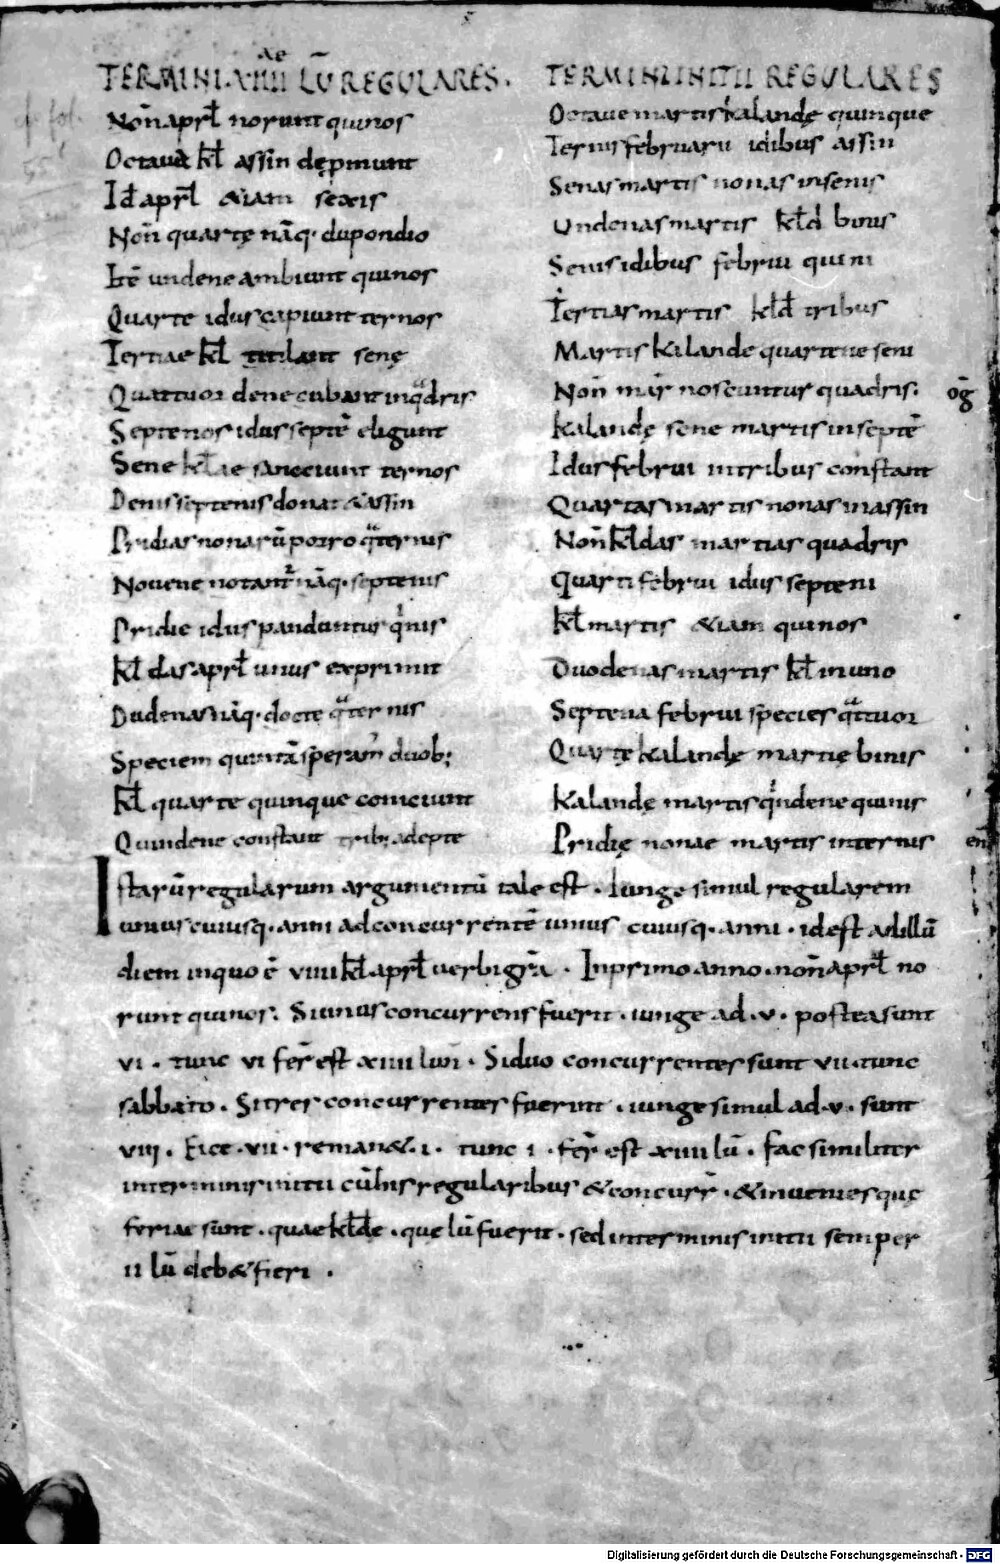 TERMINI XIIII LŪ REGULARES.
Non̄ aprł norunt quinos
Octauæ kł assin dępmunt
Id aprł &iam sexis
Non̄ quartę nāq· dupondio
Itē undene ambiunt quinos
Quarte idus capiunt ternos
Tertiae kł titilant senę
Quattuor dene cubant inqdris
Septenos idus septē eligunt
Sene kłae sanciunt ternos
Denis septenis donat &assin
Pridias nonarū porro qternis
Nouene notant nāq· septenis
Pridie idus panduntur qnis
kł das aprł unus exprimit
Dudenas nāq· docte qternis
Speciem quintā speram duob;
kł quarte quinque coniciunt
Quindene constant trib; adepte
TERMINI INITII REGULARES
Octaue martis kalandę quinque
Ternis februarii idibus assin
Senas martis nonas insenis
Undenas martis kłd binis
Senis idibus februi quini
Tertias martis kłd tribus
Martis kalande quarteue seni
Non̄ mar noscuntur quadris.
Kalandę sene martis inseptē
Idus februi intribus constant
Quartas martis nonas inassin
Non̄ kłdas martias quadris
Quarti februi idus septeni
kł martis &iam quinos
Duodenas martis kł inuno
Septena februi species qttuor
Quartę kalandę martię binis
Kalandę martis qndene quinis
Pridię nonae martis internis
Istarū regularum argumentū tale est · Iunge simul regularem
unius cuiusq· anni adconcurrentē unius cuiusq· anni · idest adillū
diem inquo ē viiii kłd aprł uerbigrā · Inprimo anno · non̄ aprł no
runt quinos. Siunus concurrens fuerit · iunge ad · v · postea sunt
vi · tunc vi fer est xiiii lun · Siduo concurrentes sunt vii · tunc
sabbato · Sitres concurrentes fuerint · iunge simul ad · v · sunt
viii · Eice · vii · reman& · i · tunc i · fer est xiiii lū · fac similiter
interminis initii cū his regularibus &concurr · &inuenies quę
feriae sunt · quae kłdę · que lū fuerit · sed interminis initii semper
ii lū deb& fieri ·
Digitalisierung gefördert durch die Deutsche Forschungsgemeinschaft - DFG